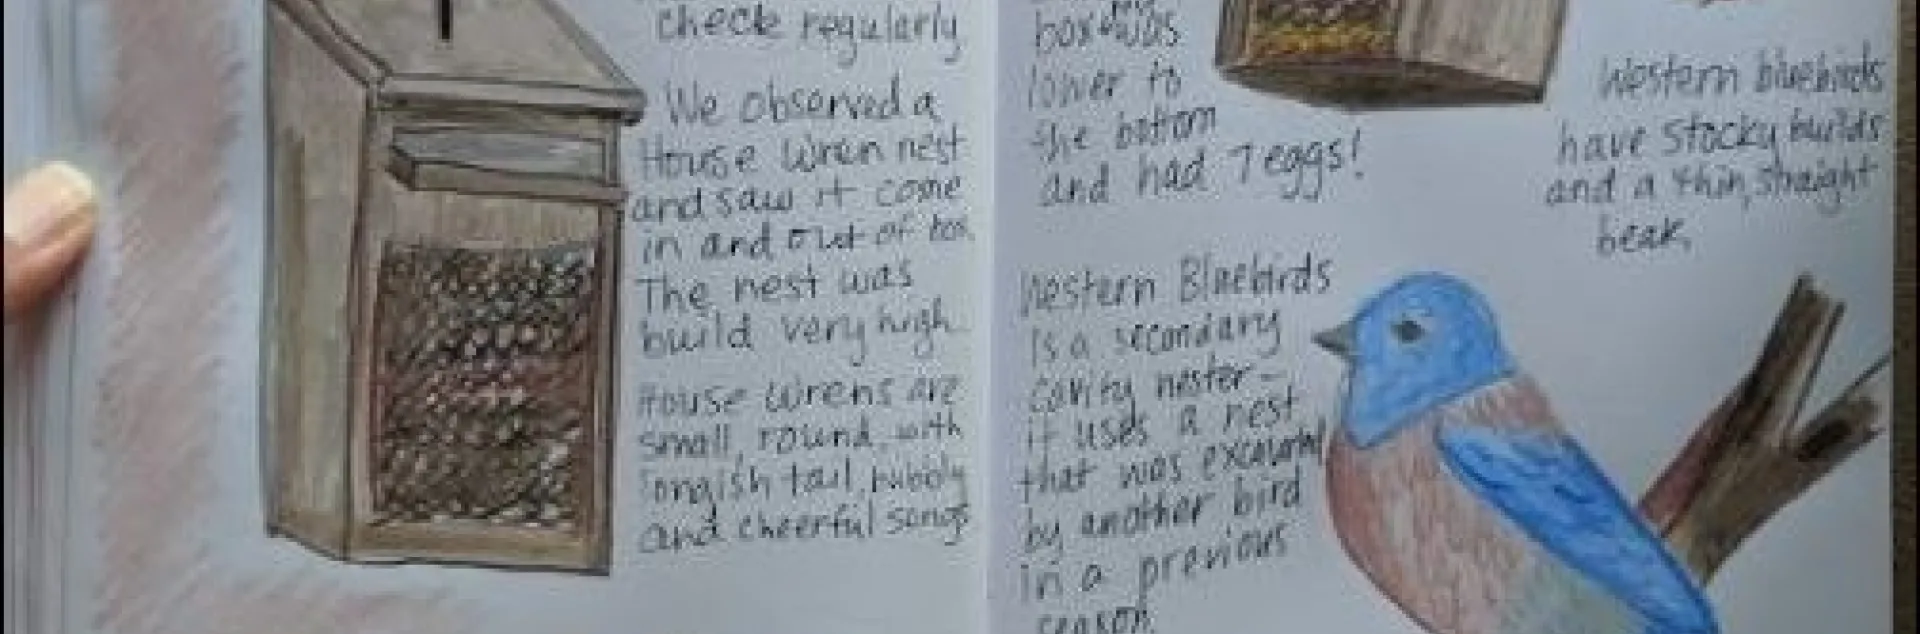 check regularly
We observed a
House Wren nest
and saw it come
in and out of box.
The nest was
build very high.
House Wrens are
small, round, with
longish tail, bubbly
and cheerful songs
box was
lower to
the bottom
and had 7 eggs!
Western Bluebirds
is a secondary
cavity nester -
it uses a nest
that was excavated
by another bird
in a previous
season.
Western bluebirds
have stocky builds
and a thin, straight
beak.